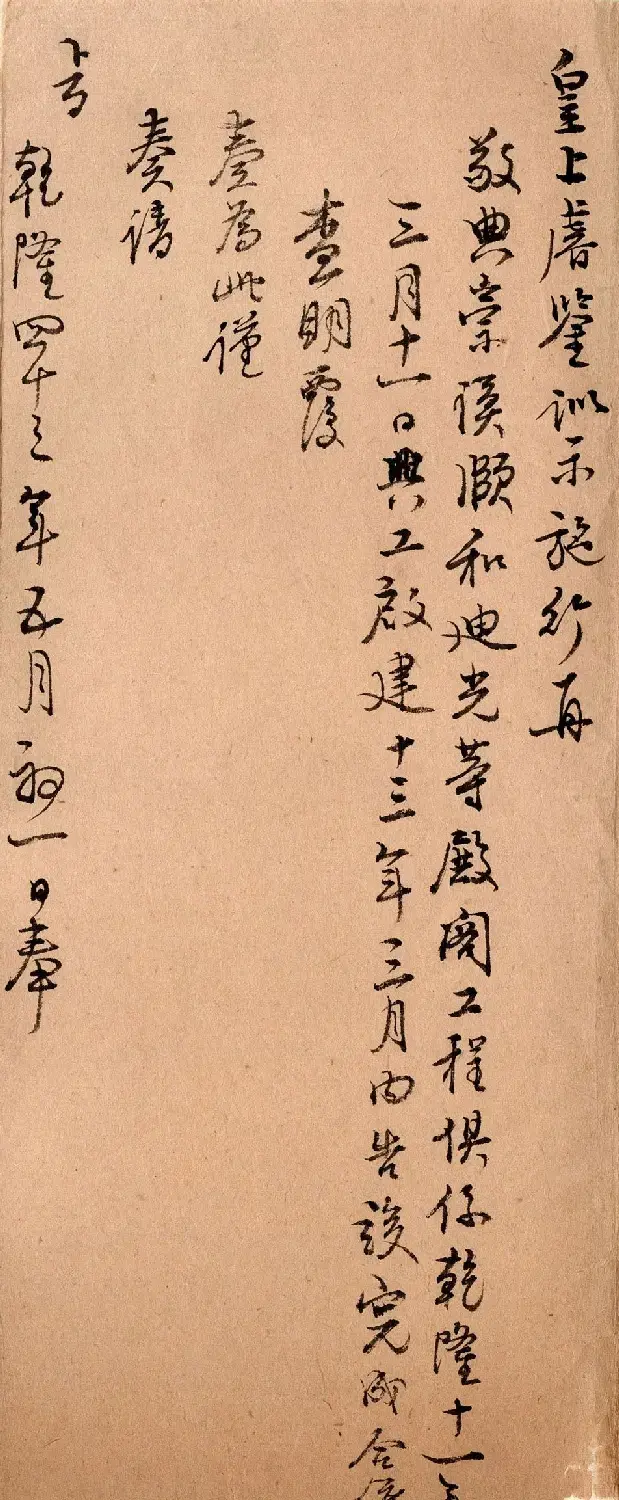 皇上睿鑒訓示施行再
敬典崇謨頤和迪光等殿閣工程俱係乾隆十一年
三月十一日興工啟建十三年三月內告竣完成合
查明覆
奏為此謹
奏請
旨
乾隆四十三年五月初一日奉